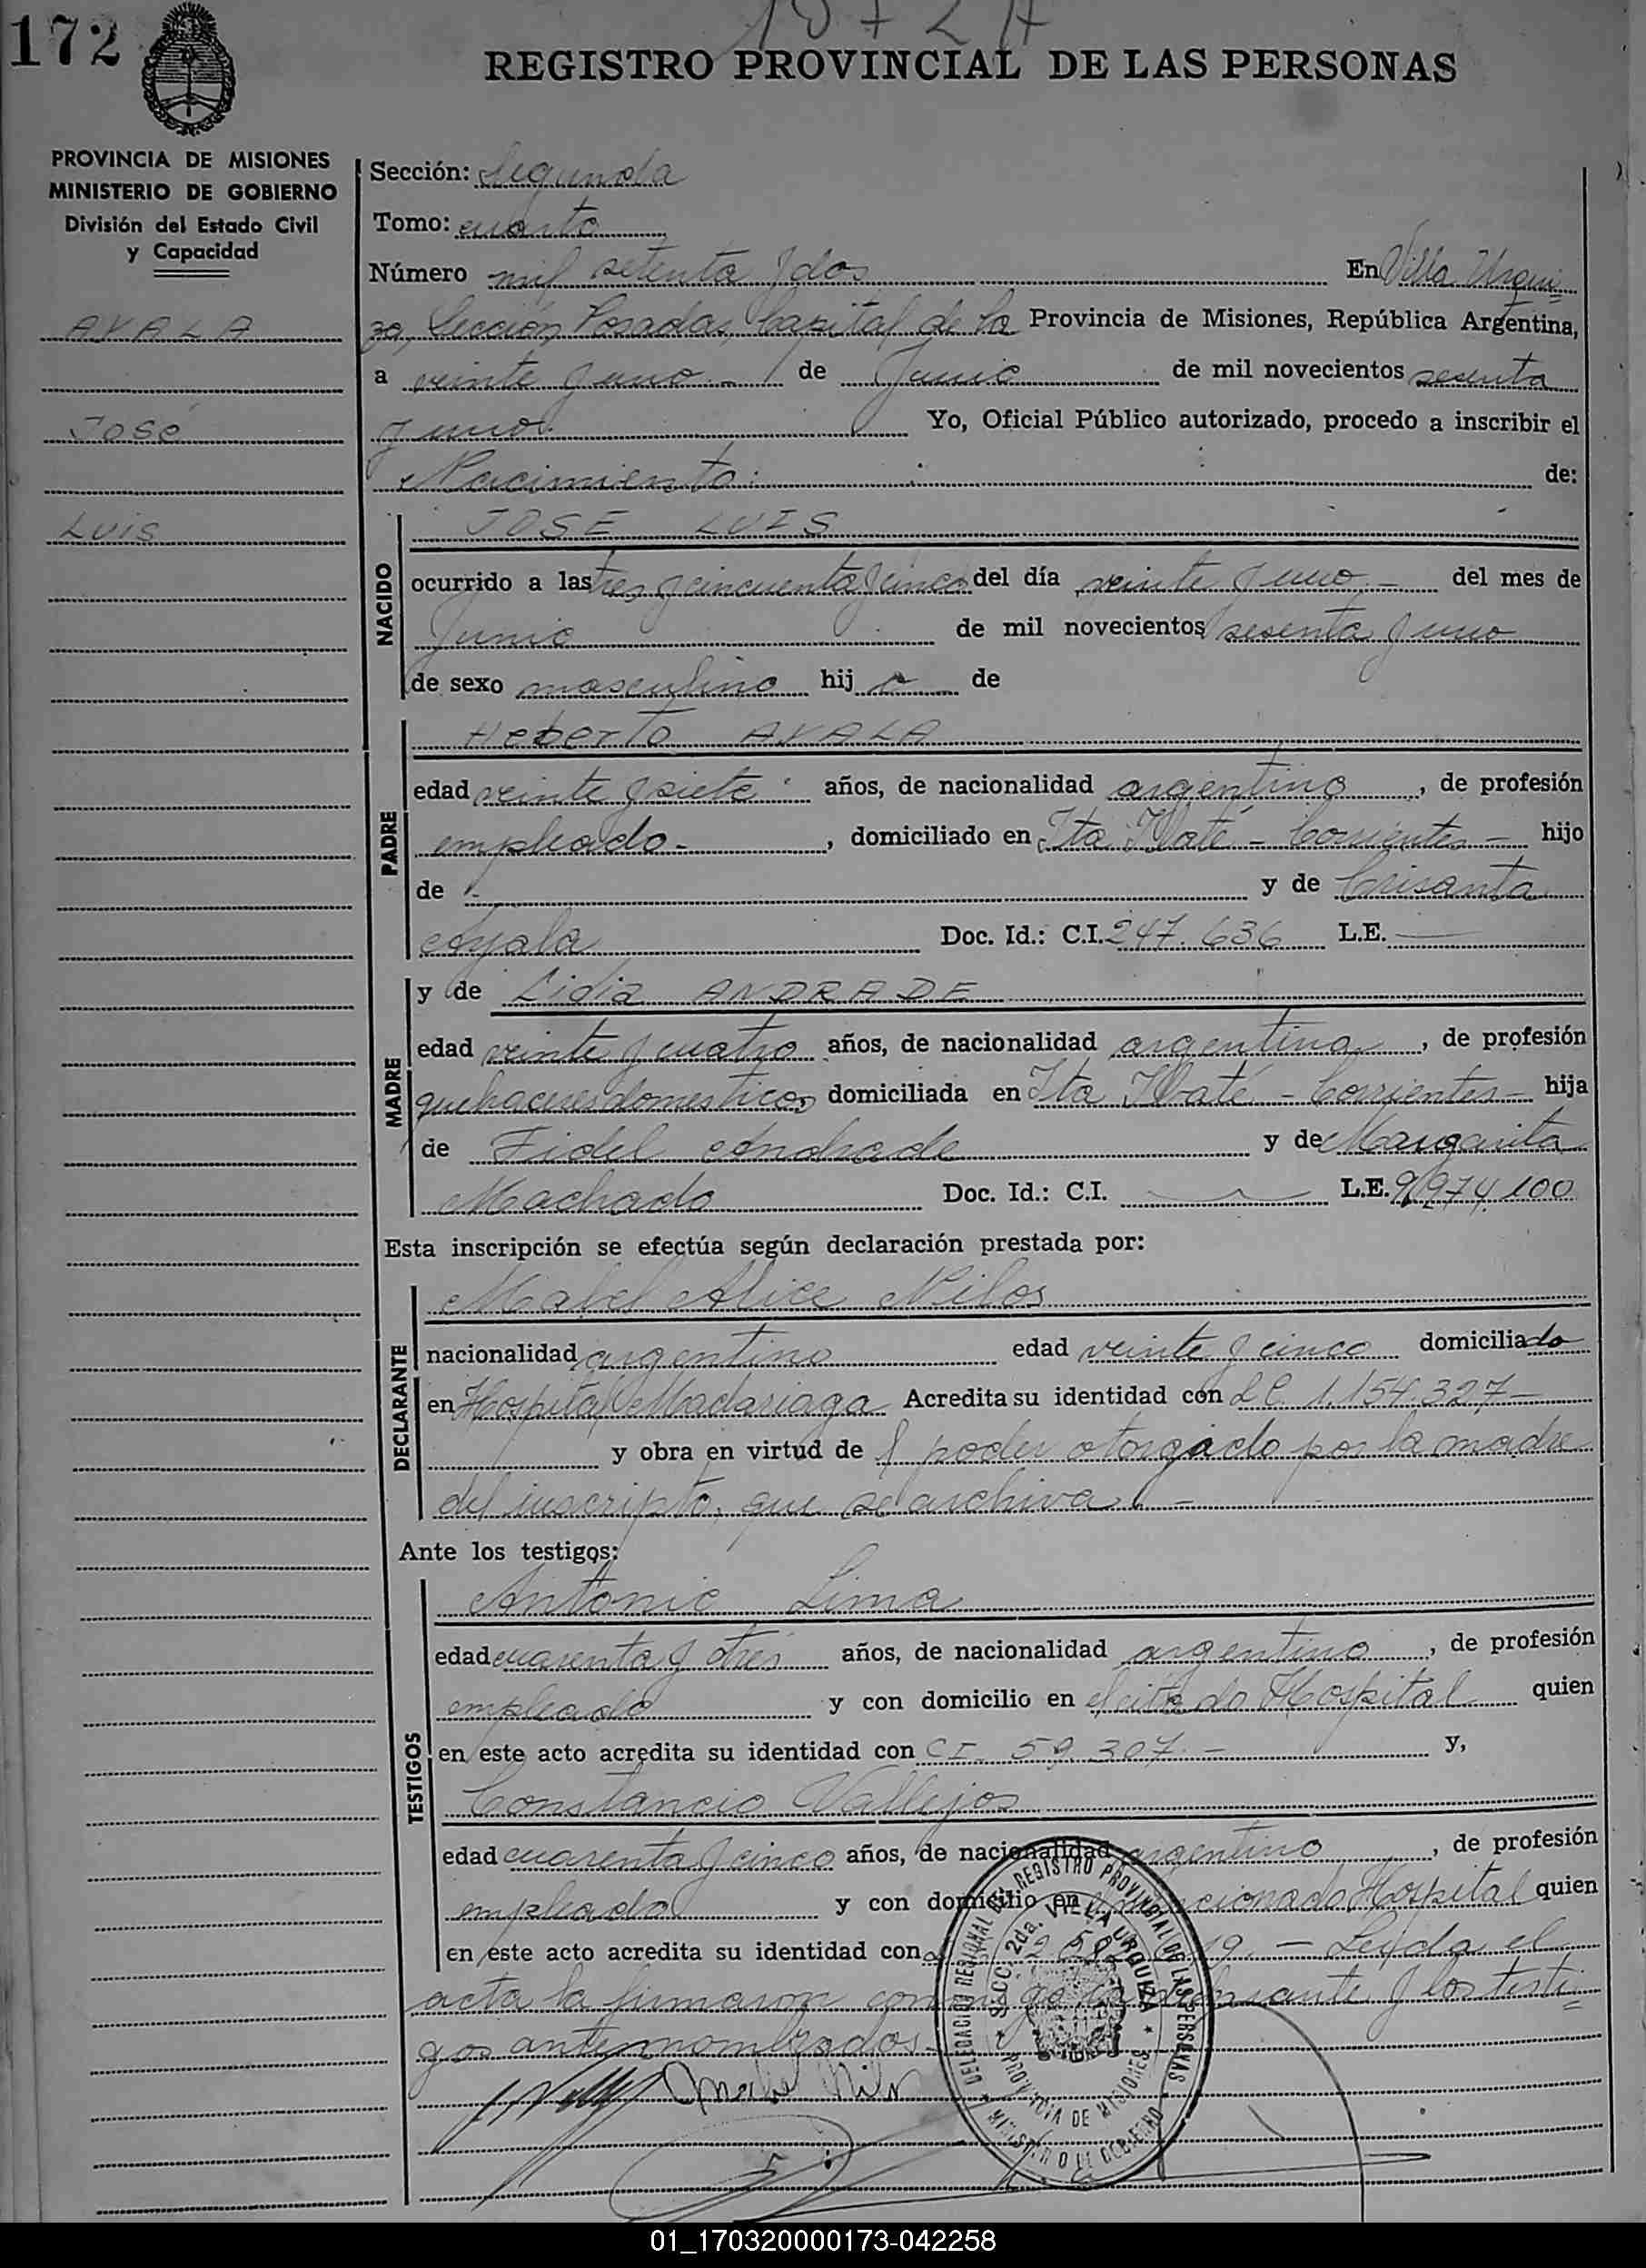 172
1072 A
REGISTRO PROVINCIAL DE LAS PERSONAS
PROVINCIA DE MISIONES
MINISTERIO DE GOBIERNO
División del Estado Civil
y Capacidad
AYALA
José
Luis
Sección: Segunda
Tomo: cuarto
Número mil setenta y dos En Villa Urqui=
za, Sección Posadas, Capital de la Provincia de Misiones, República Argentina,
a veinte y uno - de Junio de mil novecientos sesenta
y uno. Yo, Oficial Público autorizado, procedo a inscribir el
Nacimiento: de:
NACIDO
JOSE LUIS
ocurrido a las tres y cincuenta y cinco del día veinte y uno - del mes de
Junio de mil novecientos sesenta y uno
de sexo masculino hij o de
PADRE
Heberto AYALA
edad veinte y siete años, de nacionalidad argentino, de profesión
empleado -, domiciliado en Ita Ibaté - Corrientes - hijo
de - y de Crisanta
Ayala Doc. Id.: C.I. 247.636 L.E. —
MADRE
y de Lidia ANDRADE
edad veinte y cuatro años, de nacionalidad argentina, de profesión
quehaceres domesticos domiciliada en Ita Ibaté - Corrientes - hija
de Fidel Andrade y de Margarita
Machado Doc. Id.: C.I. — L.E. 9.974.100
Esta inscripción se efectúa según declaración prestada por:
DECLARANTE
Mabel Alice Nilos
nacionalidad argentino edad veinte y cinco domiciliado
en Hospital Madariaga Acredita su identidad con L.C. 1.154.327 -
y obra en virtud de l poder otorgado por la madre
del inscripto, que se archiva. -
Ante los testigos:
TESTIGOS
Antonio Lima
edad cuarenta y tres años, de nacionalidad argentino, de profesión
empleado y con domicilio en el citado Hospital quien
en este acto acredita su identidad con CI. 59.307. - y,
Constancio Vallejos
edad cuarenta y cinco años, de nacionalidad argentino, de profesión
empleado y con domicilio en el mencionado Hospital quien
en este acto acredita su identidad con 19. - Leída el
acta la firmaron conmigo la declarante y los testi=
gos antenombrados.
Mabel Nilos
DELEGACION REGIONAL DEL REGISTRO PROVINCIAL DE LAS PERSONAS
MINISTERIO DE GOBIERNO
SECC. 2da. VILLA URQUIZA
PROVINCIA DE MISIONES
01_170320000173-042258